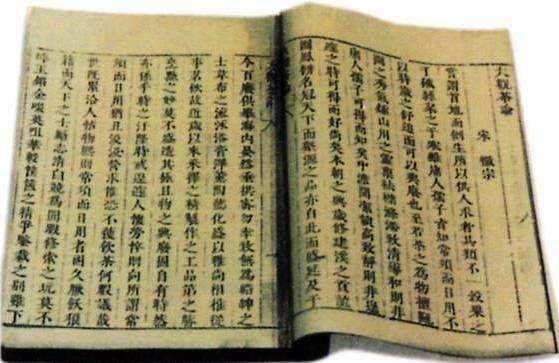 大觀茶論
宋 徽宗
嘗謂首地而倒生所以供人求者其類不一穀粟之
于饑絲枲之于寒雖庸人孺子皆知常須而日用不
以時歲之舒迫而可以興廢也至若茶之為物擅甌
閩之秀氣鍾山川之靈稟祛襟滌滯致清導和則非
庸人孺子可得而知矣中澹閒潔韻高致靜則非遑
遽之時可得而好尚矣本朝之興歲修建溪之貢龍
團鳳餅名冠天下而壑源之品亦自此而盛延及于
今百廢俱舉海內晏然垂拱密勿幸致無為縉紳之
士韋布之流沐浴膏澤薰陶德化盛以雅尚相推從
事茗飲故近歲以來採擇之精製作之工品第之勝
烹點之妙莫不盛造其極且物之興廢固自有時然
亦係乎時之汙隆時或遑遽人懷勞悴則向所謂常
須而日用猶且汲汲營求惟恐不獲飲茶何暇議哉
世既累洽人恬物熙則常須而日用者固久厭飫狼
籍而天下之士勵志清白競為閒暇修索之玩莫不
碎玉鏘金啜英咀華較筐篋之精爭鑒裁之別雖下